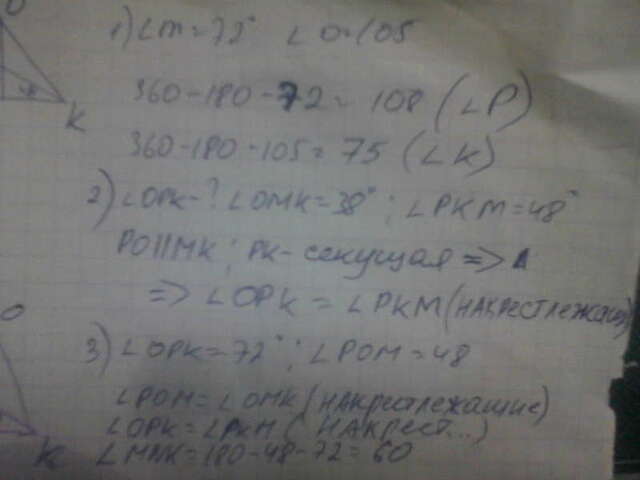 O
K
1) ∠M = 72° ∠O = 105
360-180-72 = 108 (∠P)
360-180-105 = 75 (∠K)
2) ∠OPK-? ∠OMK = 38° ; ∠PKM = 48°
PO||MK ; PK- секущая =>
=> ∠OPK = ∠PKM (НАКРЕСТЛЕЖАЩИЕ)
O
3) ∠OPK = 72° ; ∠POM = 48
∠POM = ∠OMK (НАКРЕСТЛЕЖАЩИЕ)
∠OPK = ∠PKM ( НАКРЕСТ...)
K
= 180-48-72 = 60